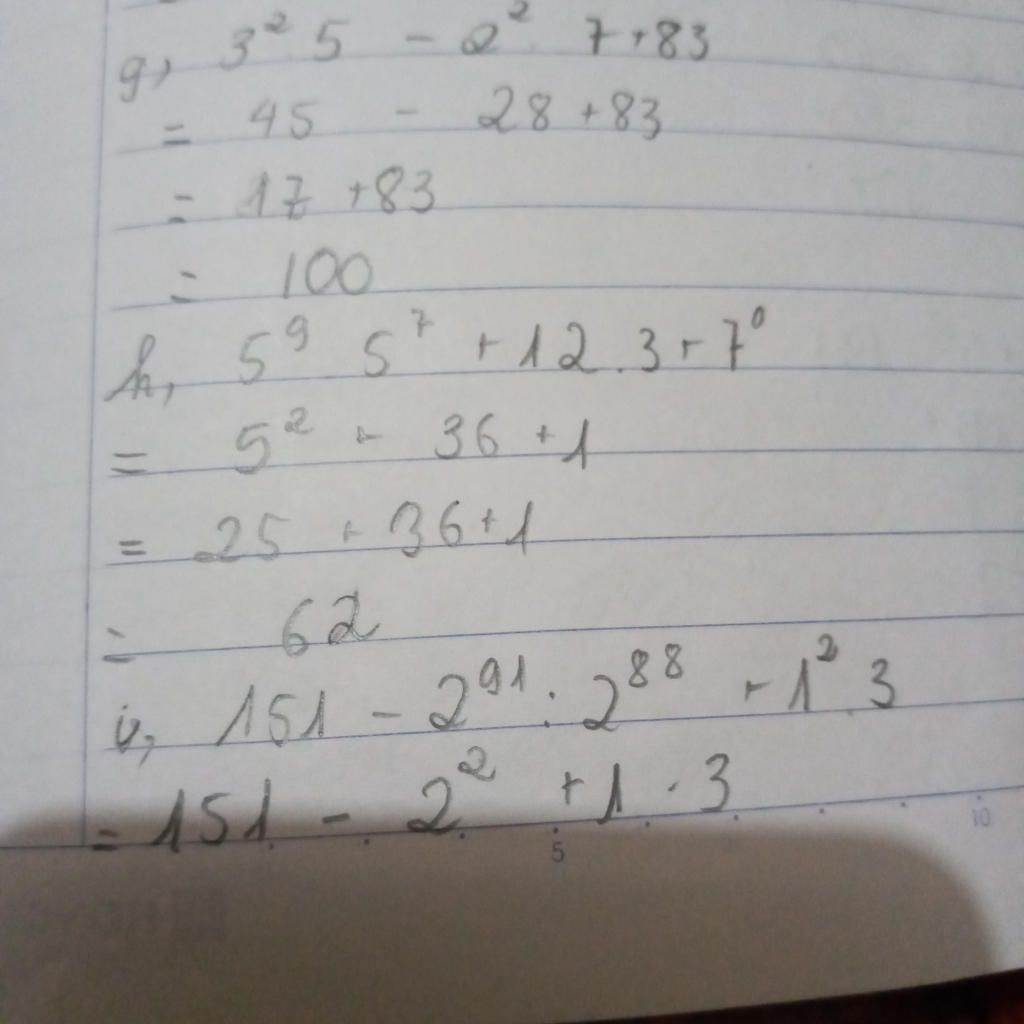 g, 3² 5 - 2² 7 + 83
= 45 - 28 + 83
= 17 + 83
= 100
h, 5⁹ 5⁷ + 12.3 + 7⁰
= 5² + 36 + 1
= 25 + 36 + 1
= 62
i, 151 - 2⁹¹ : 2⁸⁸ + 1² . 3
= 151 - 2² + 1 . 3
5
10